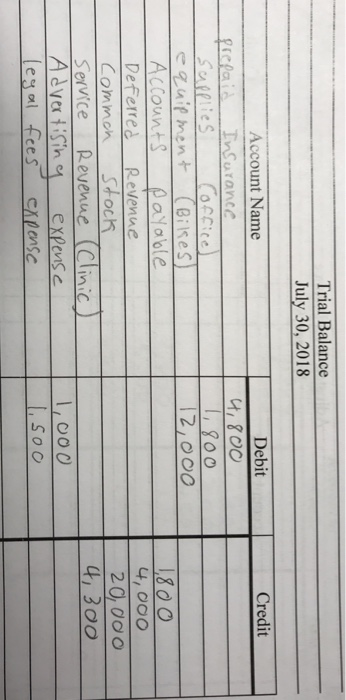 Trial Balance
July 30, 2018
Account Name Debit Credit
prepaid Insurance 4,800
Supplies (office) 1,800
equipment (Bilses) 12,000
Accounts payable 1,800
Deferred Revenue 4,000
Common stock 20,000
Service Revenue (Clinic) 4,300
Advertising expense 1,000
legal fees expense 1.500